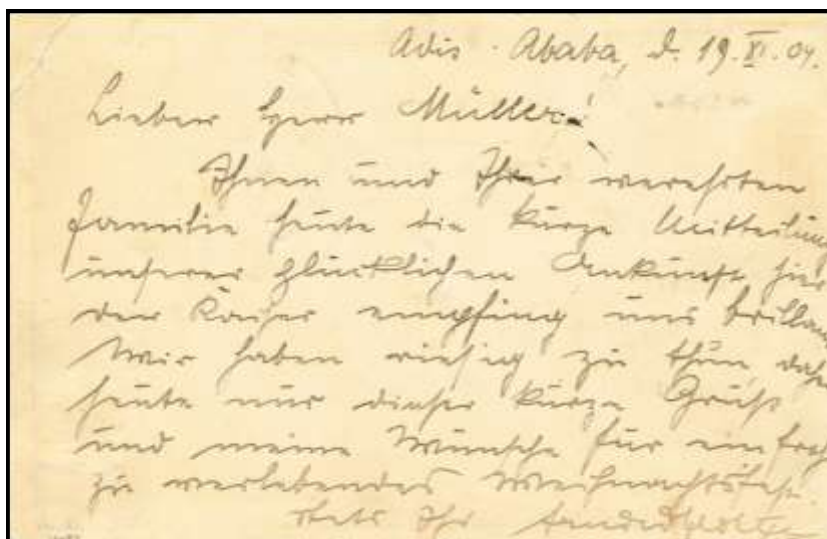 Adis-Ababa, d. 19. XI. 04.
Lieber Herr Müller!
Ihnen und Ihrer verehrten
Familie heute die kurze Mitteilung
unserer glücklichen Ankunft hier
der Kaiser empfing uns brillant
Wir haben riesig zu thun, daher
heute nur dieser kurze Gruß
und meine Wünsche für ein froh
zu verlebendes Weihnachtsfest.
Stets Ihr